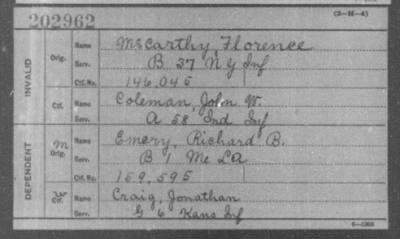 202962
(3-2E-4)
INVALID
Orig. Name McCarthy, Florence
Serv. B 37 N Y Inf
Ctf. No. 146,045
Ctf. Name Coleman, John W.
Serv. A 58 Ind Inf
DEPENDENT
M Orig. Name Emery, Richard B.
Serv. B 1 Me LA
Ctf. No. 159,595
Ctf. Name Craig, Jonathan
Serv. G 6 Kans Inf